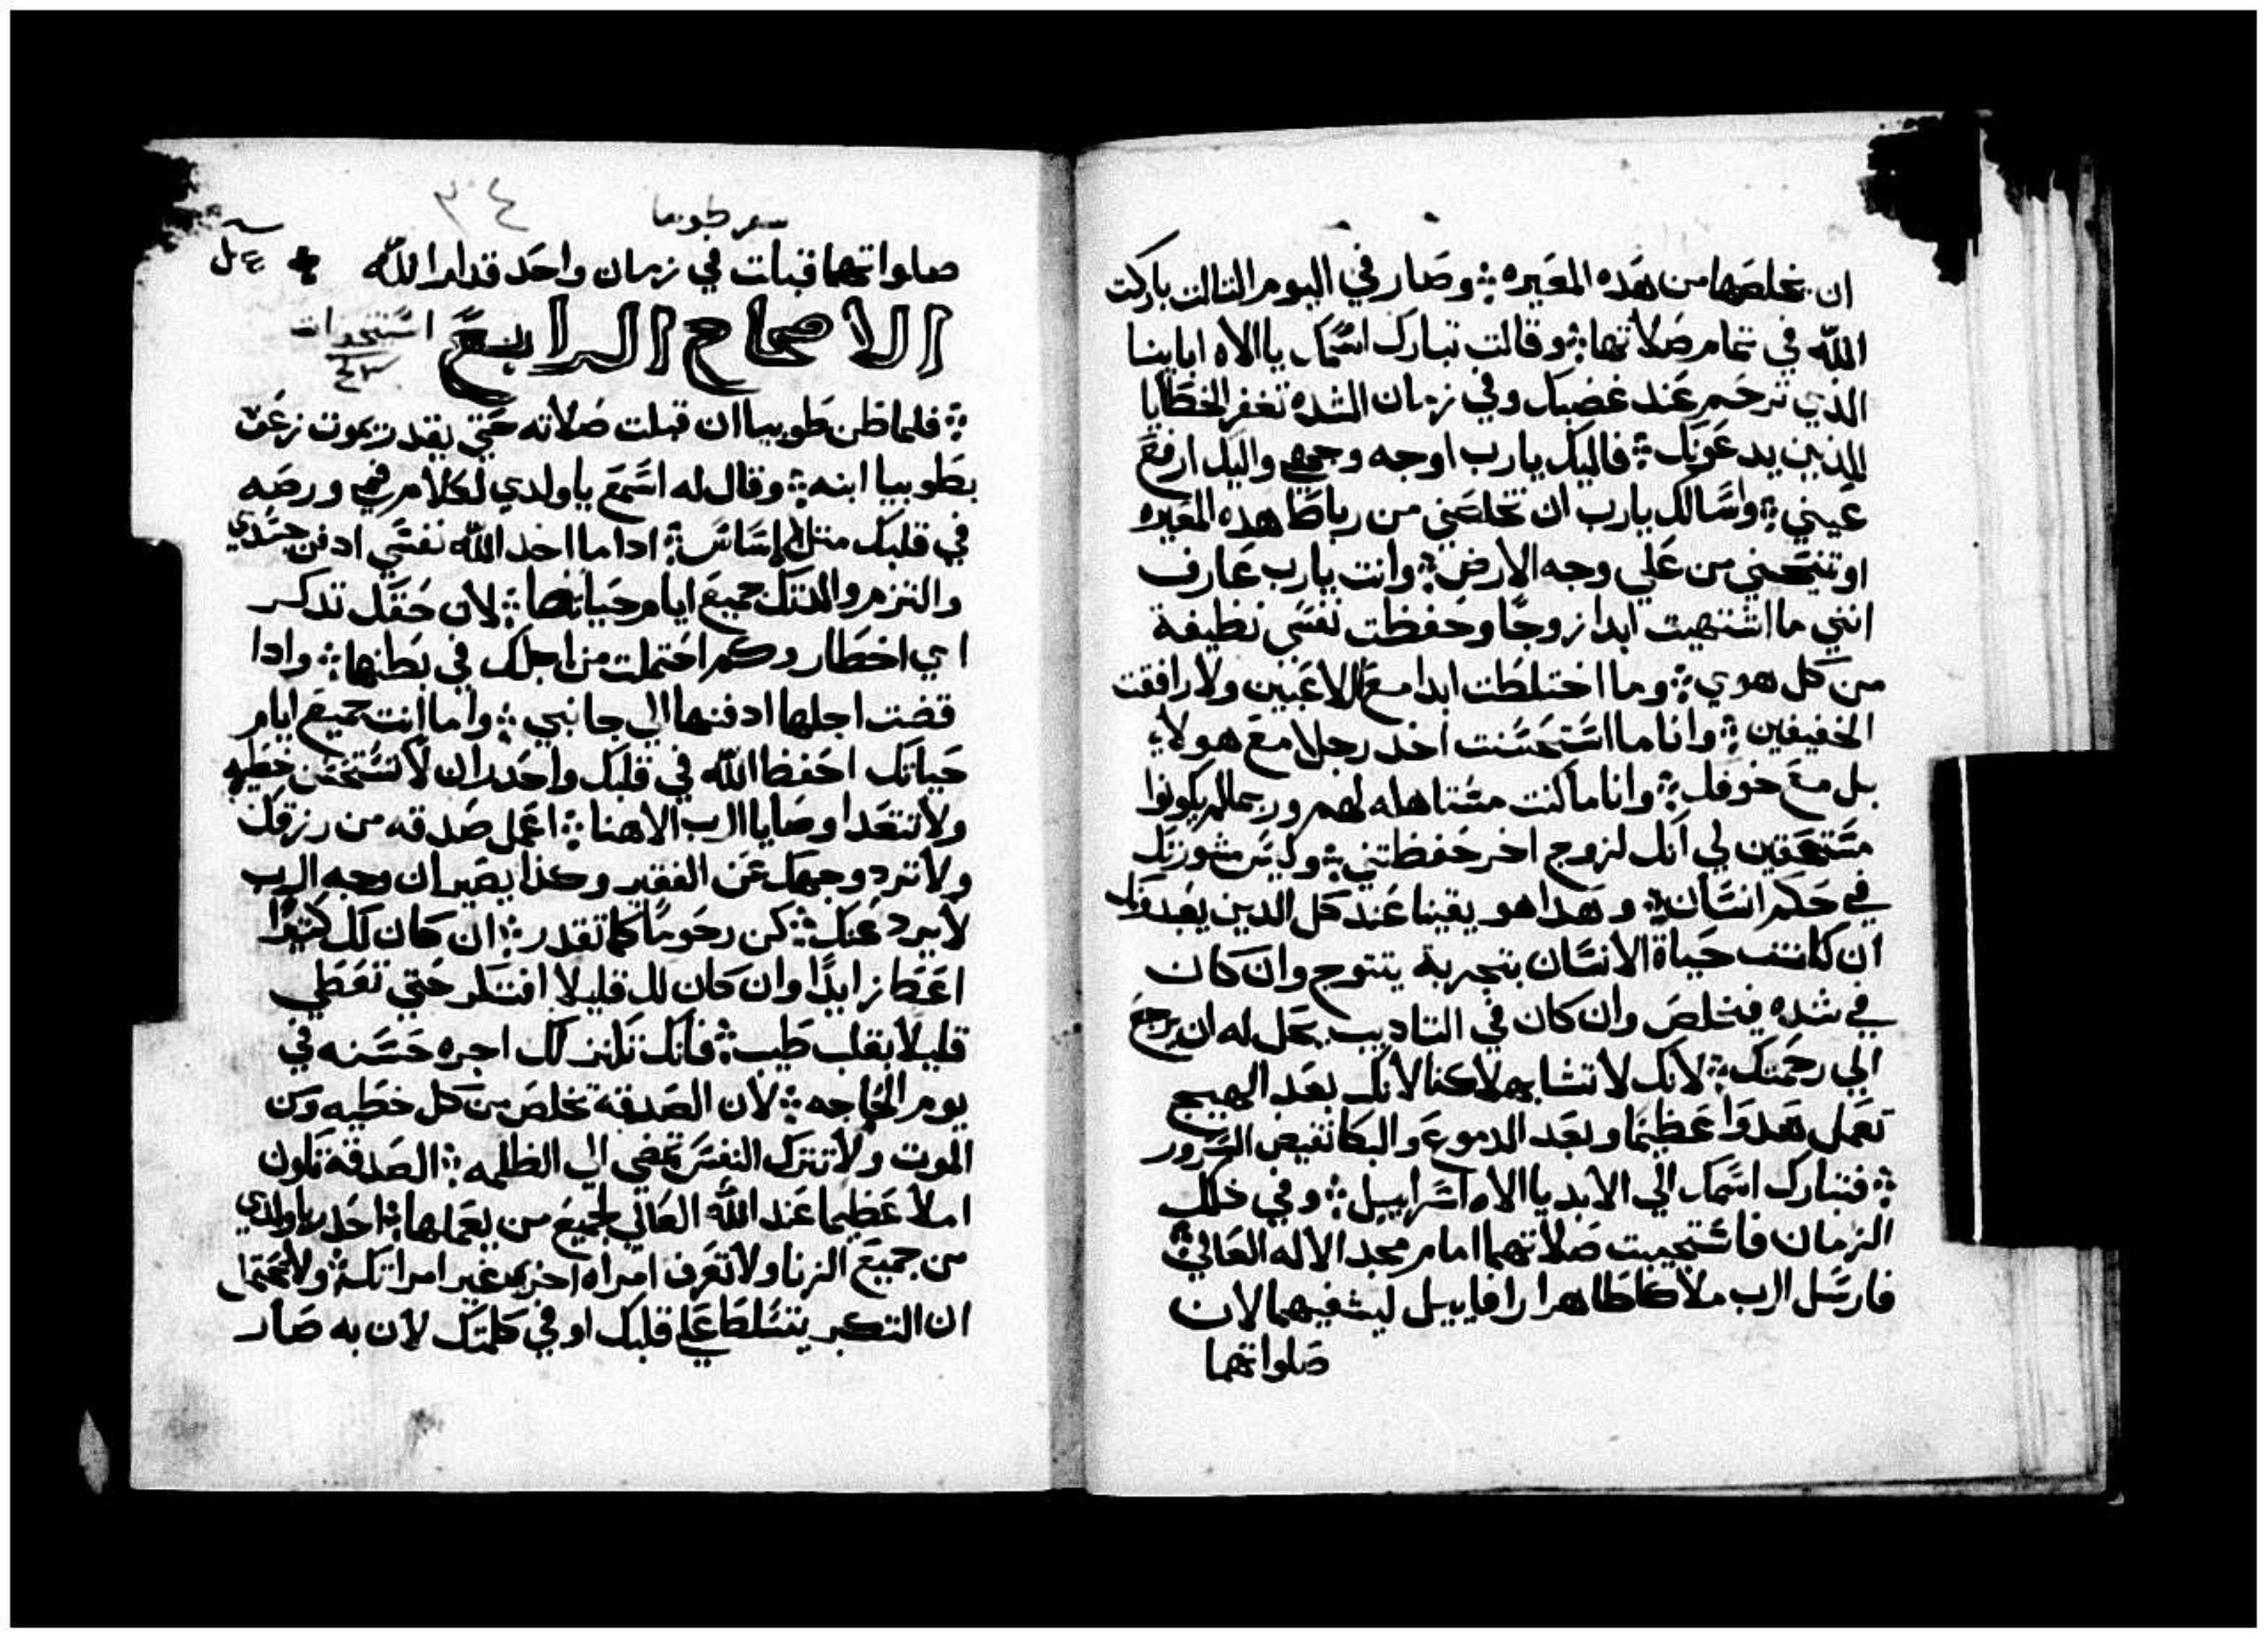 ان يخلصها من هده المعيره ؞ وصار في اليوم التالت باركت
الله في تمام صلاتها ؞ وقالت تبارك اسمك ياالاه اباينا
الذي ترحم عند غضبك وفي زمان الشده تغفر الخطايا
للذين يدعونك ؞ فاليك يارب اوجه وجهي واليك ارفع
عيني ؞ واسالك يارب ان تخلصني من رباط هده المعيره
او تنيحني من علي وجه الارض ؞ وانت يارب عارف
انني ما اشتهيت ابدا زوجا وحفظت نفسي نظيفة
من كل هوي ؞ وما اختلطت ابدا مع اللاعبين ولا رافقت
الخفيفين ؞ وانا ما استحسنت اخد رجلا مع هولاي
بل مع خوفك ؞ وانا ما كنت مستاهله لهم وربما لم يكونوا
مستحقين لي انك لزوج اخر حفظتني ؞ وليس مشورتك
في حكم انسان ؞ وهدا هو يقينا عند كل الدين يعبدونك
ان كانت حياة الانسان بتجربة يتتوج وان كان
في شده فيخلص وان كان في التاديب يحل له ان يرجع
الي رحمتك ؞ لانك لا تشا بهلاكنا لانك بعد الهيج
تعمل هدوا عظيما وبعد الدموع والبكا تفيض السرور
؞ فتبارك اسمك الي الابد ياالاه اسراييل ؞ وفي خلك
الزمان فاستجيبت صلاتهما امام مجد الاله العالي ؞
فارسل الرب ملاكا طاهرا رافاييل ليشفيهما لان
صلواتهما
٣٤
سفر طوبيا
صلواتهما قبلت في زمان واحد قدام الله
الاصحاح الرابع
؞ فلما ظن طوبيا ان قبلت صلاته حتي يقدر يموت زعق
بطوبيا ابنه ؞ وقال له اسمع ياولدي لكلام فمي ورصه
في قلبك متل الاساس ؞ ادا ما اخد الله نفسي ادفن جسدي
والتزم والدتك جميع ايام حياتها ؞ لان حقك تدكر
اي اخطار وكم احتملت من اجلك في بطنها ؞ وادا
قضت اجلها ادفنها الي جانبي ؞ واما انت جميع ايام
حياتك احفظ الله في قلبك واحدر ان لا تستحق خطيه
ولا تتعدا وصايا الرب الاهنا ؞ اعمل صدقه من رزقك
ولا ترد وجهك عن الفقير وكذا يصير ان وجه الرب
لا يرد عنك ؞ كن رحوما كما تقدر ؞ ان كان لك كتيرا
اعط زايدا وان كان لك قليلا افتكر حتي تعطي
قليلا بقلب طيب ؞ فانك تكنز لك اجره حسنه في
يوم الحاجه ؞ لان الصدقة تخلص من كل خطيه ومن
الموت ولا تترك النفس تمضي الي الظلمه ؞ الصدقة تكون
املا عظيما عند الله العالي لجميع من يعملها ؞ احدر ياولدي
من جميع الزنا ولا تعرف امراه اخري غير امراتك ؞ ولا تحتمل
ان التكبر يتسلط علي قلبك او في كلمتك لان به صار